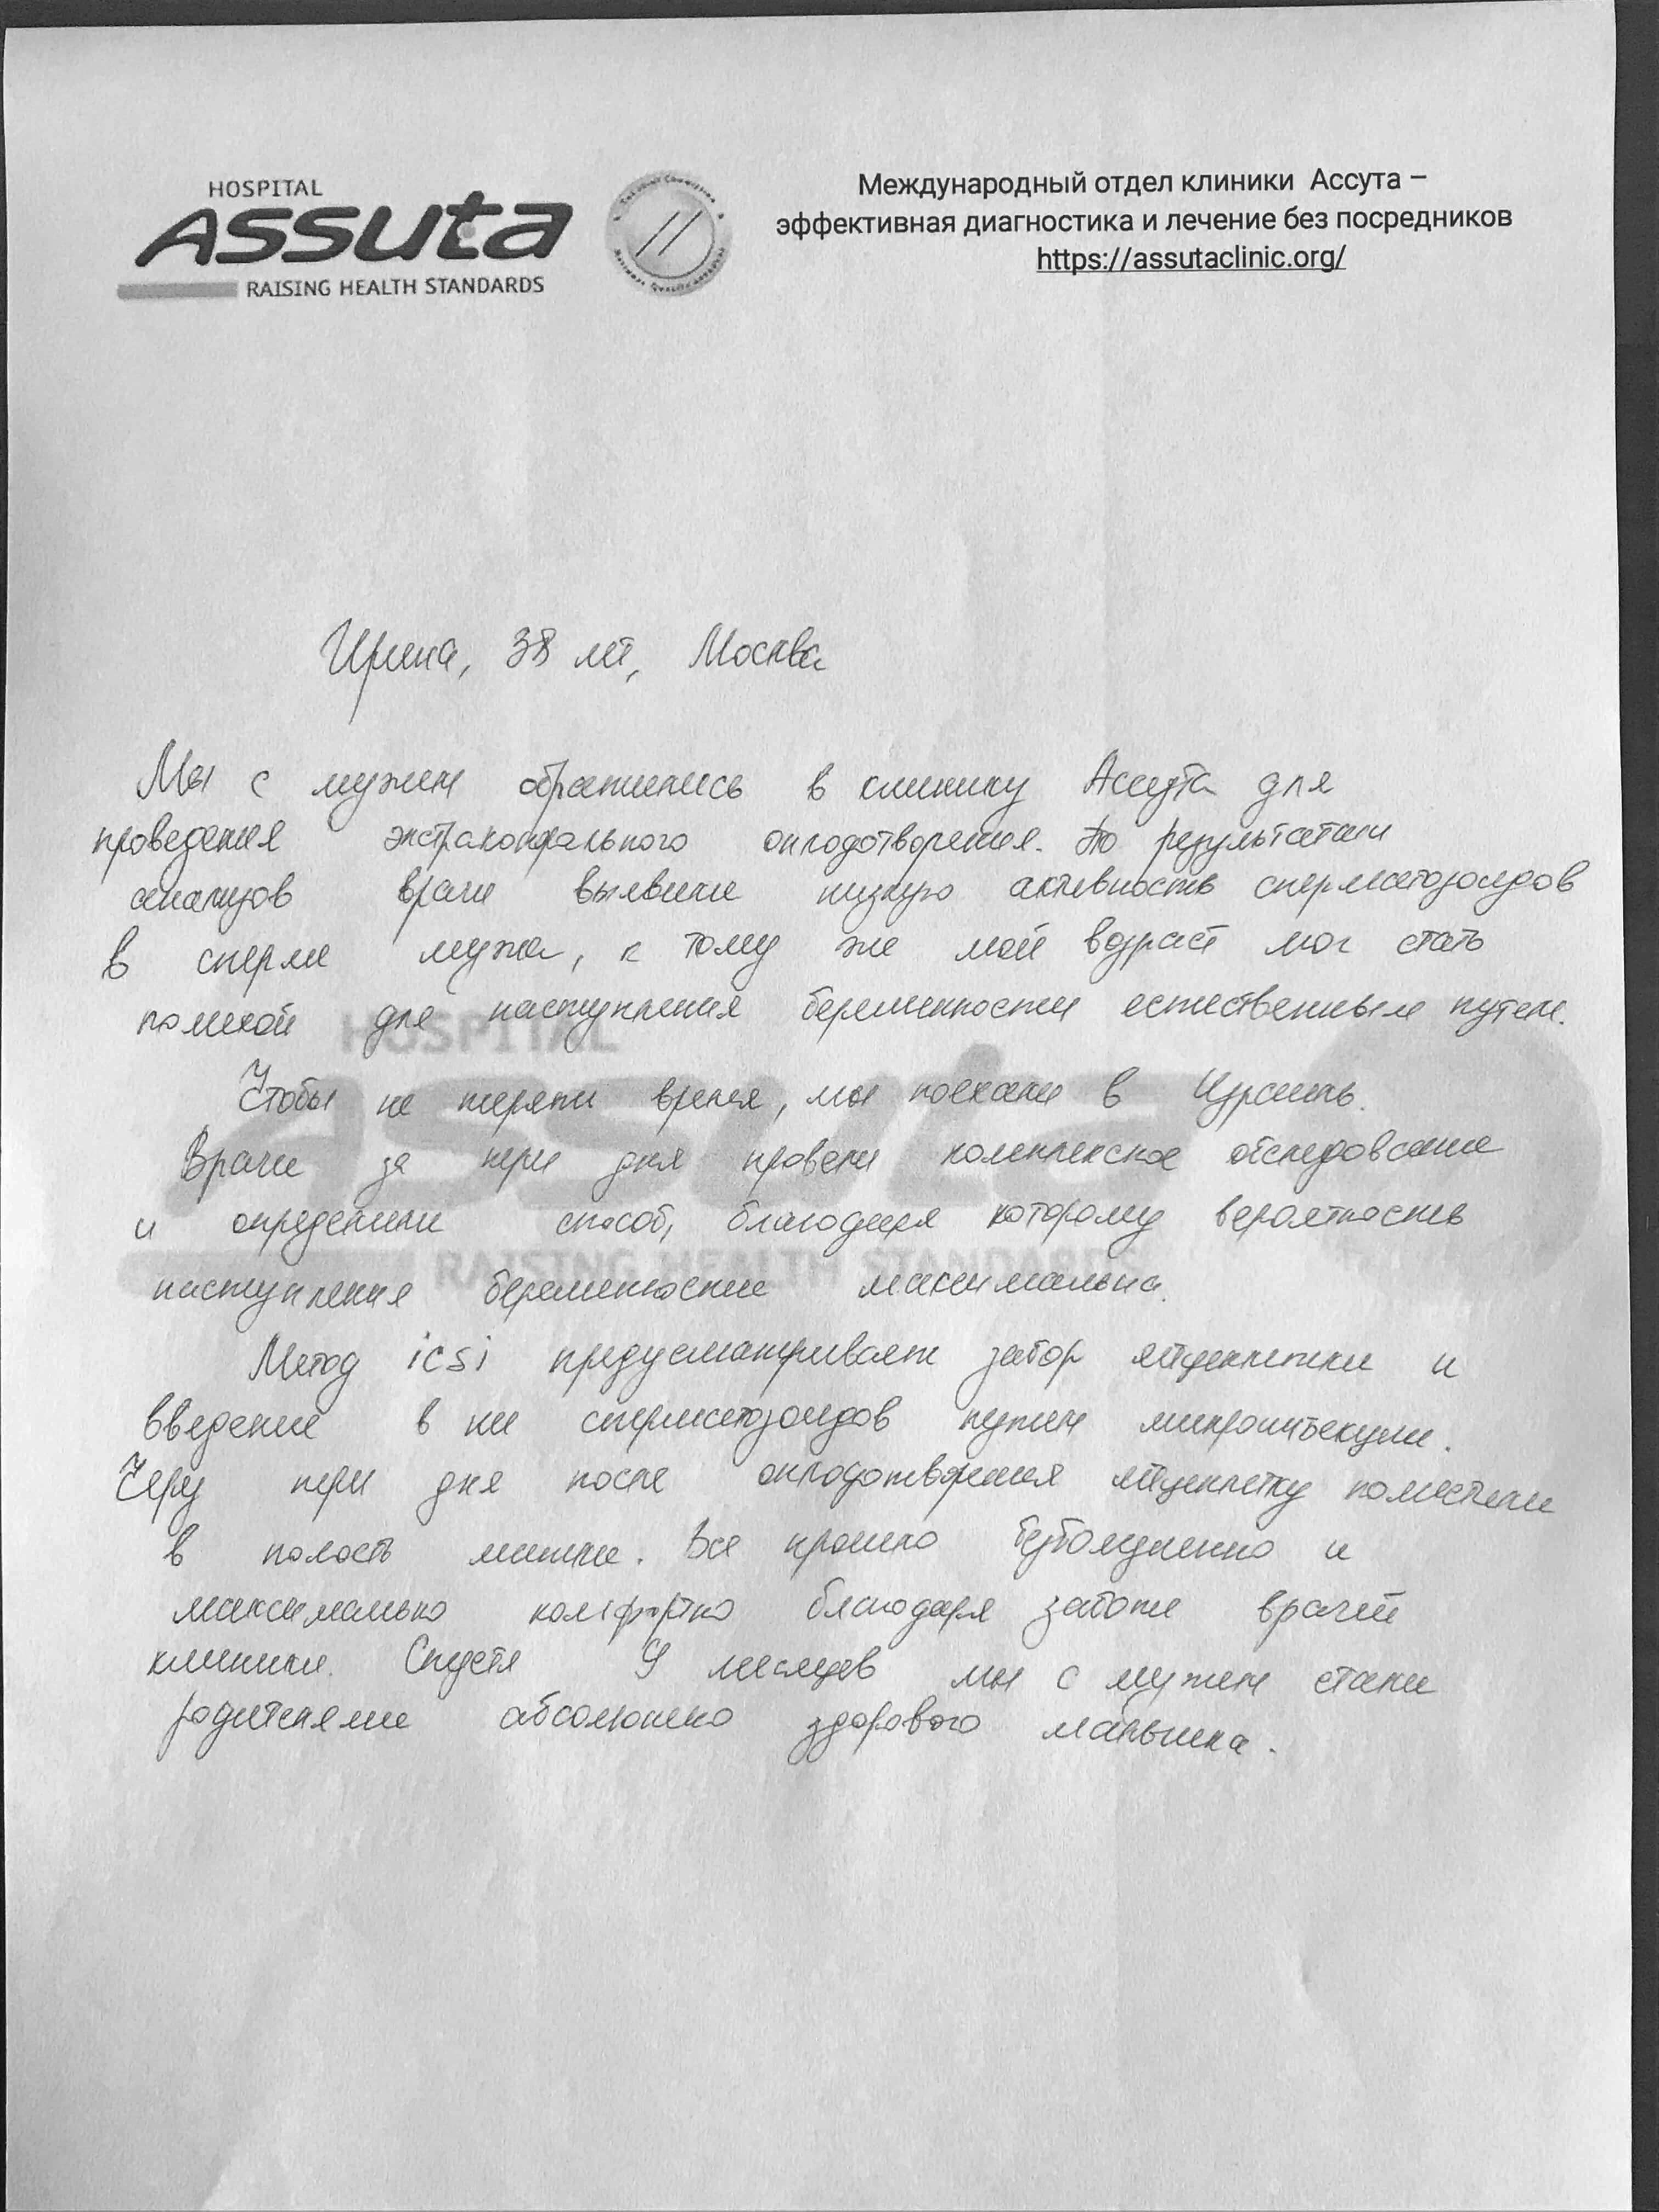 HOSPITAL
assuta
RAISING HEALTH STANDARDS
Международный отдел клиники Ассута –
эффективная диагностика и лечение без посредников
https://assutaclinic.org/
Ирина, 38 лет, Москва
Мы с мужем обратились в клинику Ассута для
проведения экстракорпорального оплодотворения. По результатам
анализов врачи выявили низкую активность сперматозоидов
в сперме мужа, к тому же мой возраст мог стать
помехой для наступления беременности естественным путем.
Чтобы не терять время, мы поехали в Израиль.
Врачи за три дня провели комплексное обследование
и определили способ, благодаря которому вероятность
наступления беременности максимальна.
Метод icsi предусматривает забор яйцеклетки и
введение в нее сперматозоидов путем микроинъекции.
Через три дня после оплодотворения яйцеклетку поместили
в полость матки. Все прошло безболезненно и
максимально комфортно благодаря заботе врачей
клиники. Спустя 9 месяцев мы с мужем стали
родителями абсолютно здорового малыша.
HOSPITAL
assuta
RAISING HEALTH STANDARDS